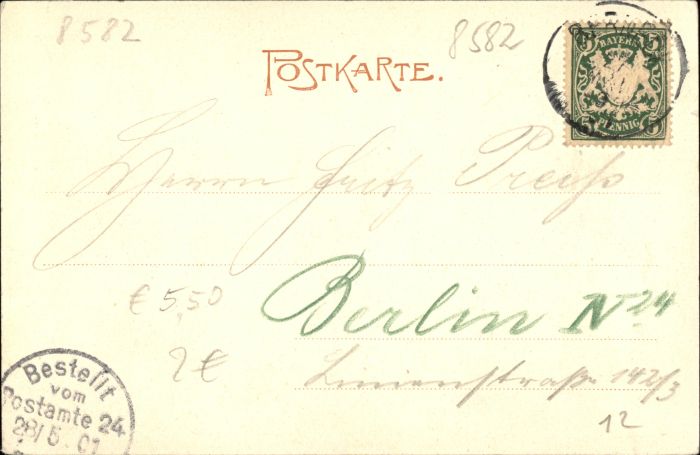 8582
8582
POSTKARTE.
BAYERN
5 5
PFENNIG
Herrn Fritz Preuß
Berlin N 24
Linienstraße 142/3
€ 5,50
2 €
12
Bestellt
vom
Postamte 24
28/5. 01